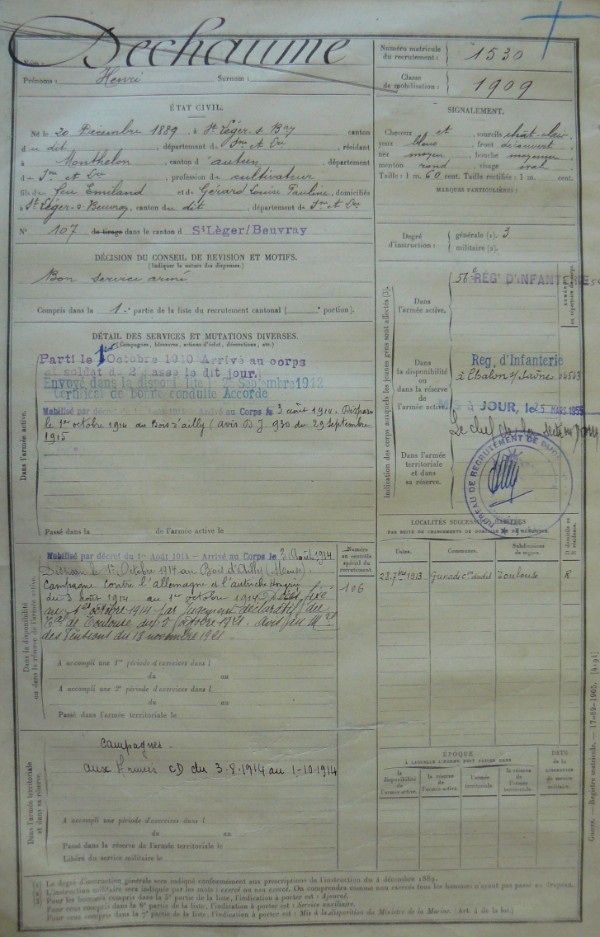 Dechaume
Nom :
Prénoms : Henri Surnom :
Numéro matricule
du recrutement : 1530
Classe
de mobilisation : 1909
ÉTAT CIVIL.
Né le 20 Décembre 1889, à St Léger s. Bay canton
du dit, département de Sne et Lre, résidant
à Monthelon, canton d'autun, département
de Sne et Lre, profession de cultivateur
fils de feu Emiland et de Gérard Louise Pauline, domiciliés
à St Léger s. Beuvray, canton du dit, département de Sne et Lre
N° 107 de tirage dans le canton de St Léger/Beuvray
SIGNALEMENT.
Cheveux et sourcils chât. clair
yeux bleus front découvert
nez moyen bouche moyenne
menton rond visage oval
Taille : 1 m. 60 cent. Taille rectifiée : 1 m. cent.
MARQUES PARTICULIÈRES :
Degré
d'instruction : générale (1). 3
militaire (1).
DÉCISION DU CONSEIL DE REVISION ET MOTIFS.
(Indiquer la nature des dispenses.)
Bon service armé
Compris dans la 1re partie de la liste du recrutement cantonal ( portion).
DÉTAIL DES SERVICES ET MUTATIONS DIVERSES.
(Campagnes, blessures, actions d'éclat, décorations, etc.)
Dans l'armée active.
Parti le 1er Octobre 1910 Arrivé au corps
et soldat de 2e classe le dit jour.
Envoyé dans la disponibilité le 25 Septembre 1912
Certificat de bonne conduite Accordé
Mobilisé par décret du 1er Août 1914 - Arrivé au Corps le 3 août 1914. Disparu
le 1er octobre 1914 au Bois d'ailly (avis D J 930 du 29 septembre
1915
Passé dans la de l'armée active le
Indication des corps auxquels les jeunes gens sont affectés (2).
Dans
l'armée active.
56e REG. D'INFANTERIE
Dans
la disponibilité
ou dans la réserve
de l'armée active.
Reg. d'Infanterie
à Chalon s/ Saône
MIS À JOUR, le 25 MARS 1955
Le chef
Dans l'armée
territoriale
et dans
sa réserve.
BUREAU DE RECRUTEMENT DE
LOCALITÉS SUCCESSIVES HABITÉES
PAR SUITE DE CHANGEMENTS DE DOMICILE OU DE RÉSIDENCE.
Dates. Communes. Subdivisions
de région.
D domicile ou
R résidence.
1913 Toulouse R
Dans la disponibilité
ou dans la réserve de l'armée active.
Mobilisé par décret du 1er Août 1914 - Arrivé au Corps le 3 Août 1914
Disparu le 1er Octobre 1914 au Bois d'Ailly (Meuse)
Campagne contre l'allemagne et l'autriche Hongrie
du 3 août 1914 au 1er octobre 1914 Décès fixé
au 1er octobre 1914 par jugement déclaratif du
Tal de Toulouse du 2 octobre 1921. avis du Mre
des Pensions du 18 novembre 1921
Numéro
au contrôle
spécial du
recrutement.
106
A accompli une 1re période d'exercices dans l
du au
A accompli une 2e période d'exercices dans l
du au
Passé dans l'armée territoriale le
Dans l'armée territoriale
et dans sa réserve.
Campagnes.
aux Armées CD du 3-8-1914 au 1-10-1914
A accompli une période d'exercices dans l
du au
Passé dans la réserve de l'armée territoriale le
Libéré du service militaire le
ÉPOQUE
À LAQUELLE L'HOMME DOIT PASSER DANS
la
disponibilité
de
l'armée active.
la réserve
de
l'armée active.
l'armée
territoriale.
la réserve
de l'armée
territoriale.
DATE
DE LA
LIBÉRATION
DU SERVICE
MILITAIRE.
Guerre. — Registre matricule. — 17-89-1905.
Le degré d'instruction générale sera indiqué conformément aux prescriptions de l'instruction du 4 décembre 1889.
L'instruction militaire sera indiquée par les mots : exercé ou non exercé. On comprendra comme non exercés tous les hommes n'ayant pas passé au drapeau.
Pour les hommes compris dans la 5e partie de la liste, l'indication à porter est : Ajourné.
Pour ceux compris dans la 6e partie de la liste, l'indication à porter est : Service auxiliaire.
Pour ceux compris dans la 7e partie de la liste, l'indication à porter est : Mis à la disposition du Ministre de la Marine. (Art. 4 de la loi.)